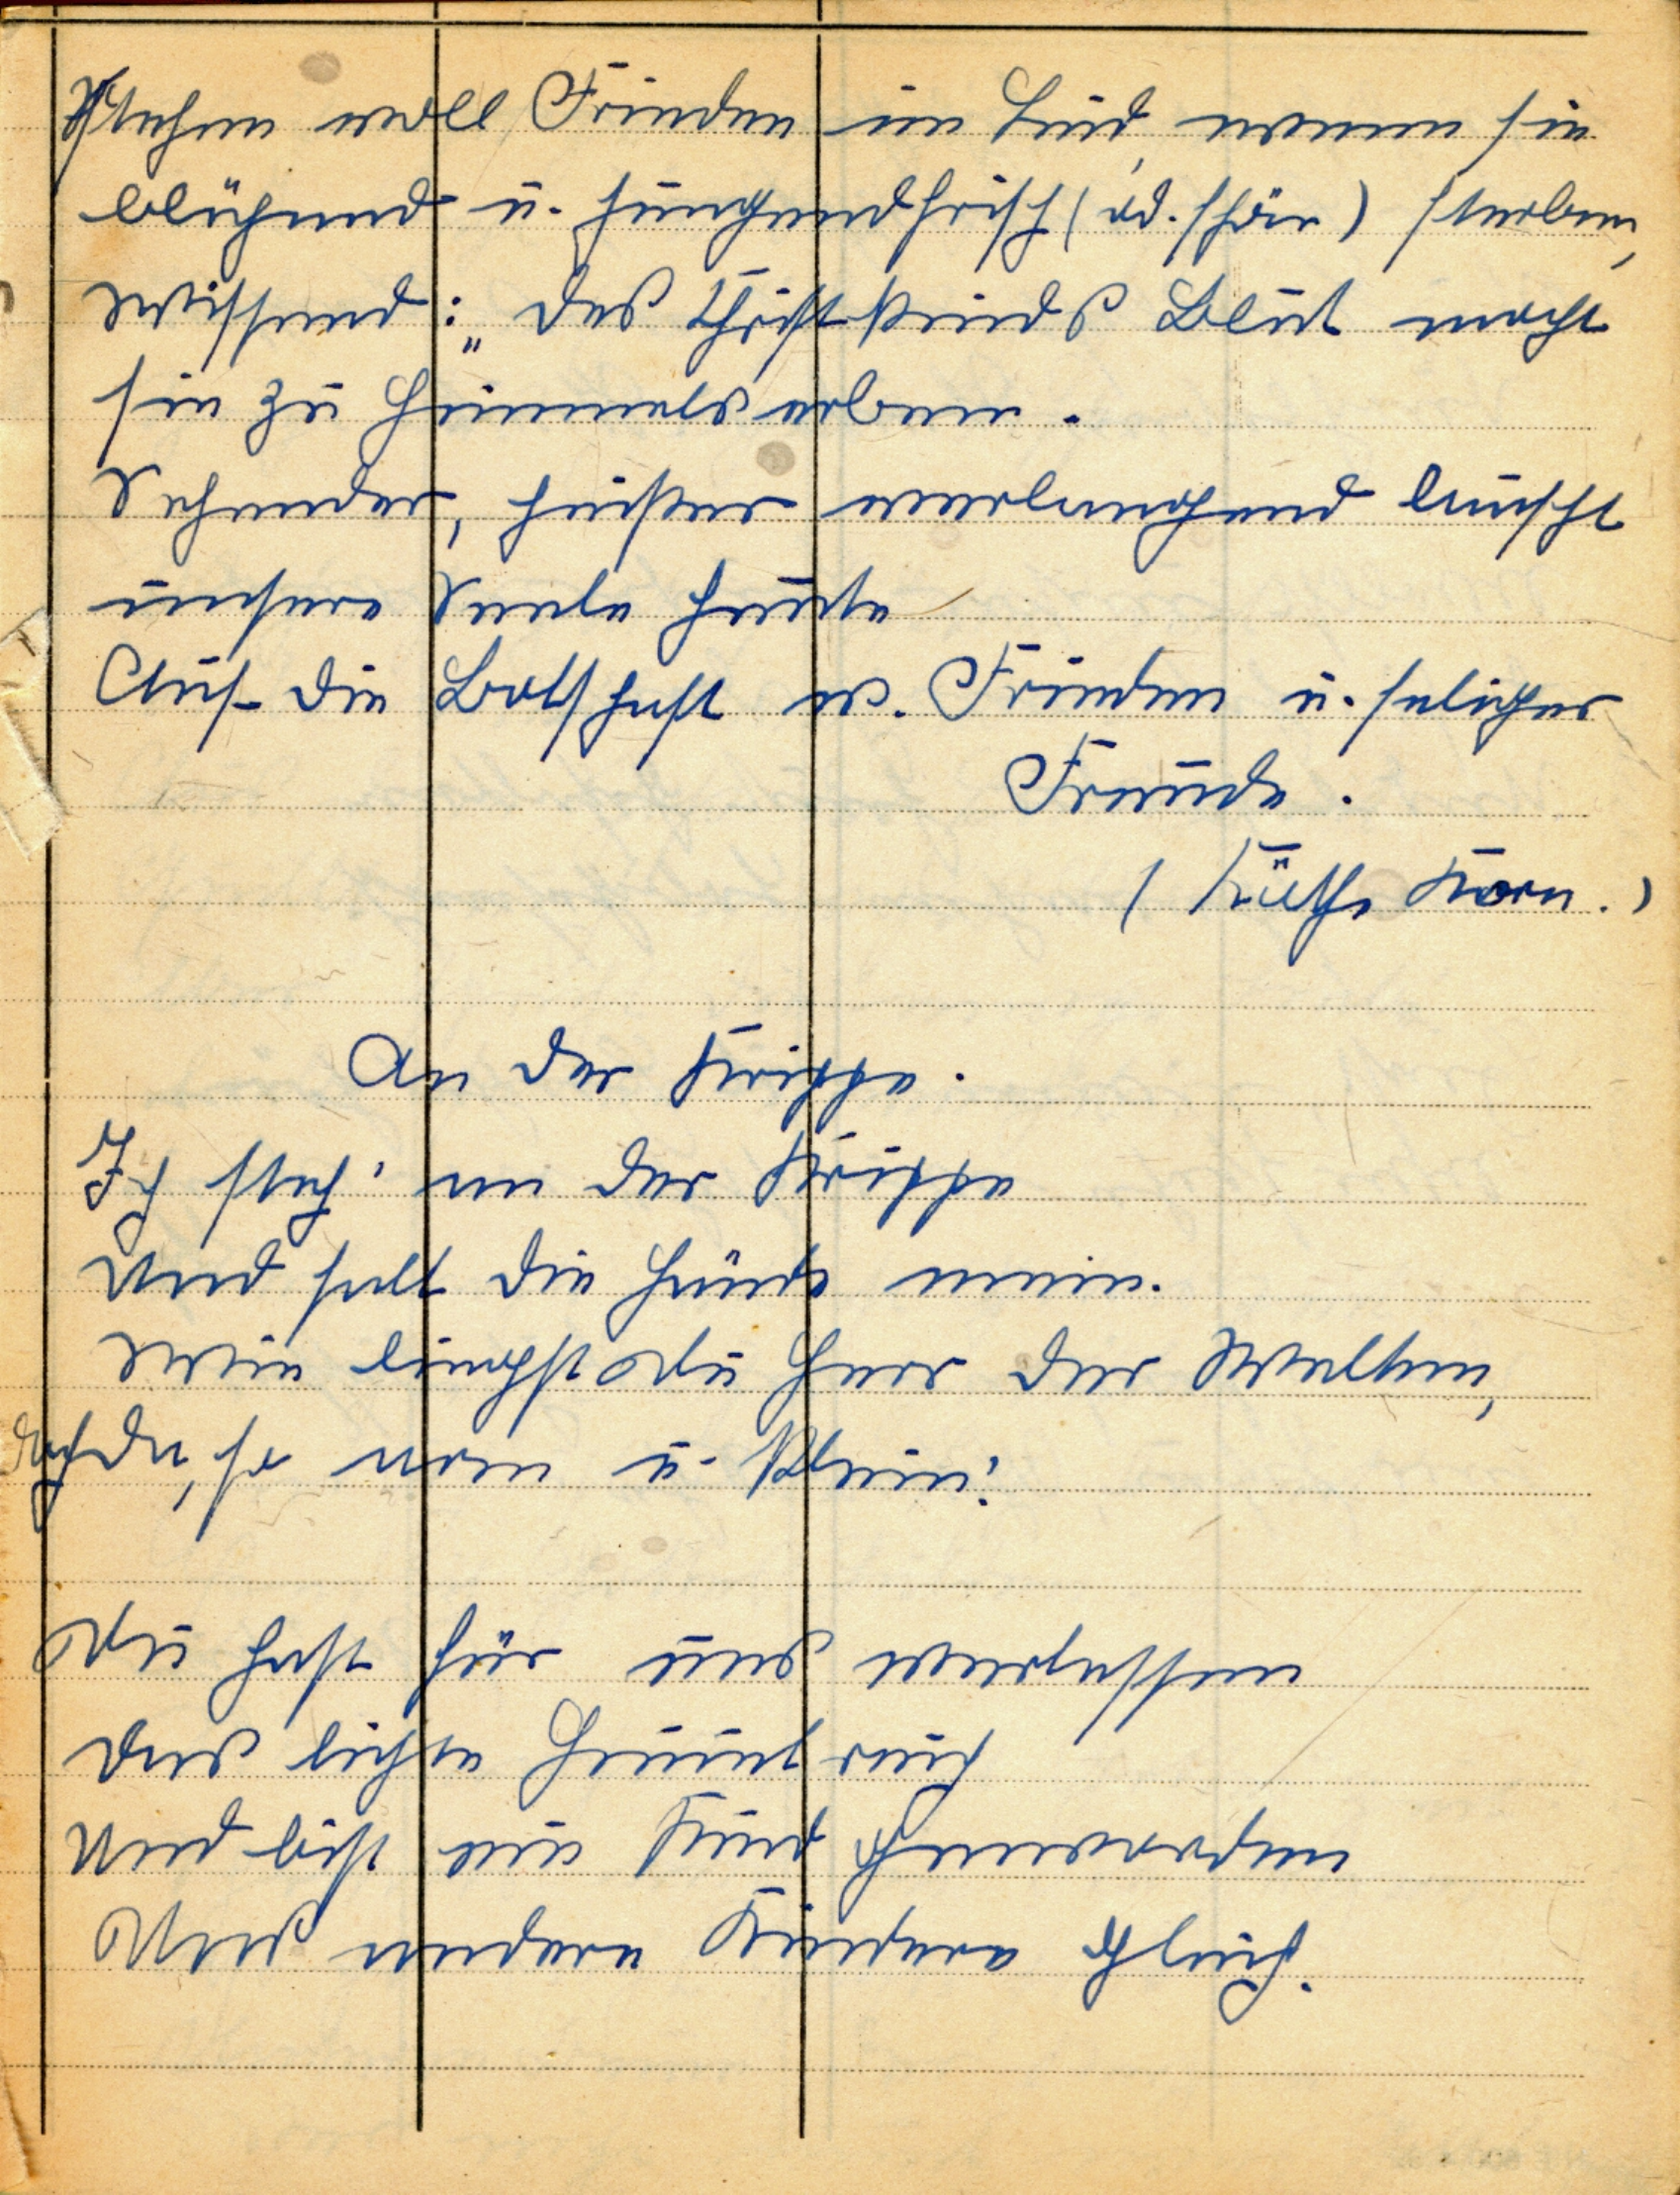 Stehen voll Frieden im Leid, wenn sie
blühend u. jugendfrisch (od. schön) sterben,
Wissend: „Des Christkinds Blut macht
sie zu Himmelserben.
Sehender, heißer verlangend lauscht
unsere Seele heute
Auf die Botschaft v. Frieden u. seliger
Freude.
(Käthe Korn.)
An der Krippe.
Ich steh' an der Krippe
Und falt die Hände mein.
Wie liegst Du Herr der Welten,
doch da, so arm u. klein!
Du hast für uns verlassen
Das lichte Himmelreich
Und bist ein Kind geworden
Uns andere Kindern gleich.